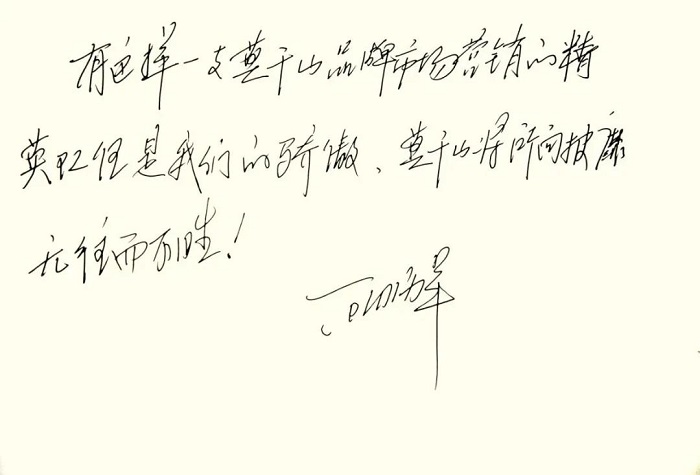 有这样一支莫干山品牌市场营销的精
英队伍是我们的骄傲、莫干山将所向披靡
无往而不胜！